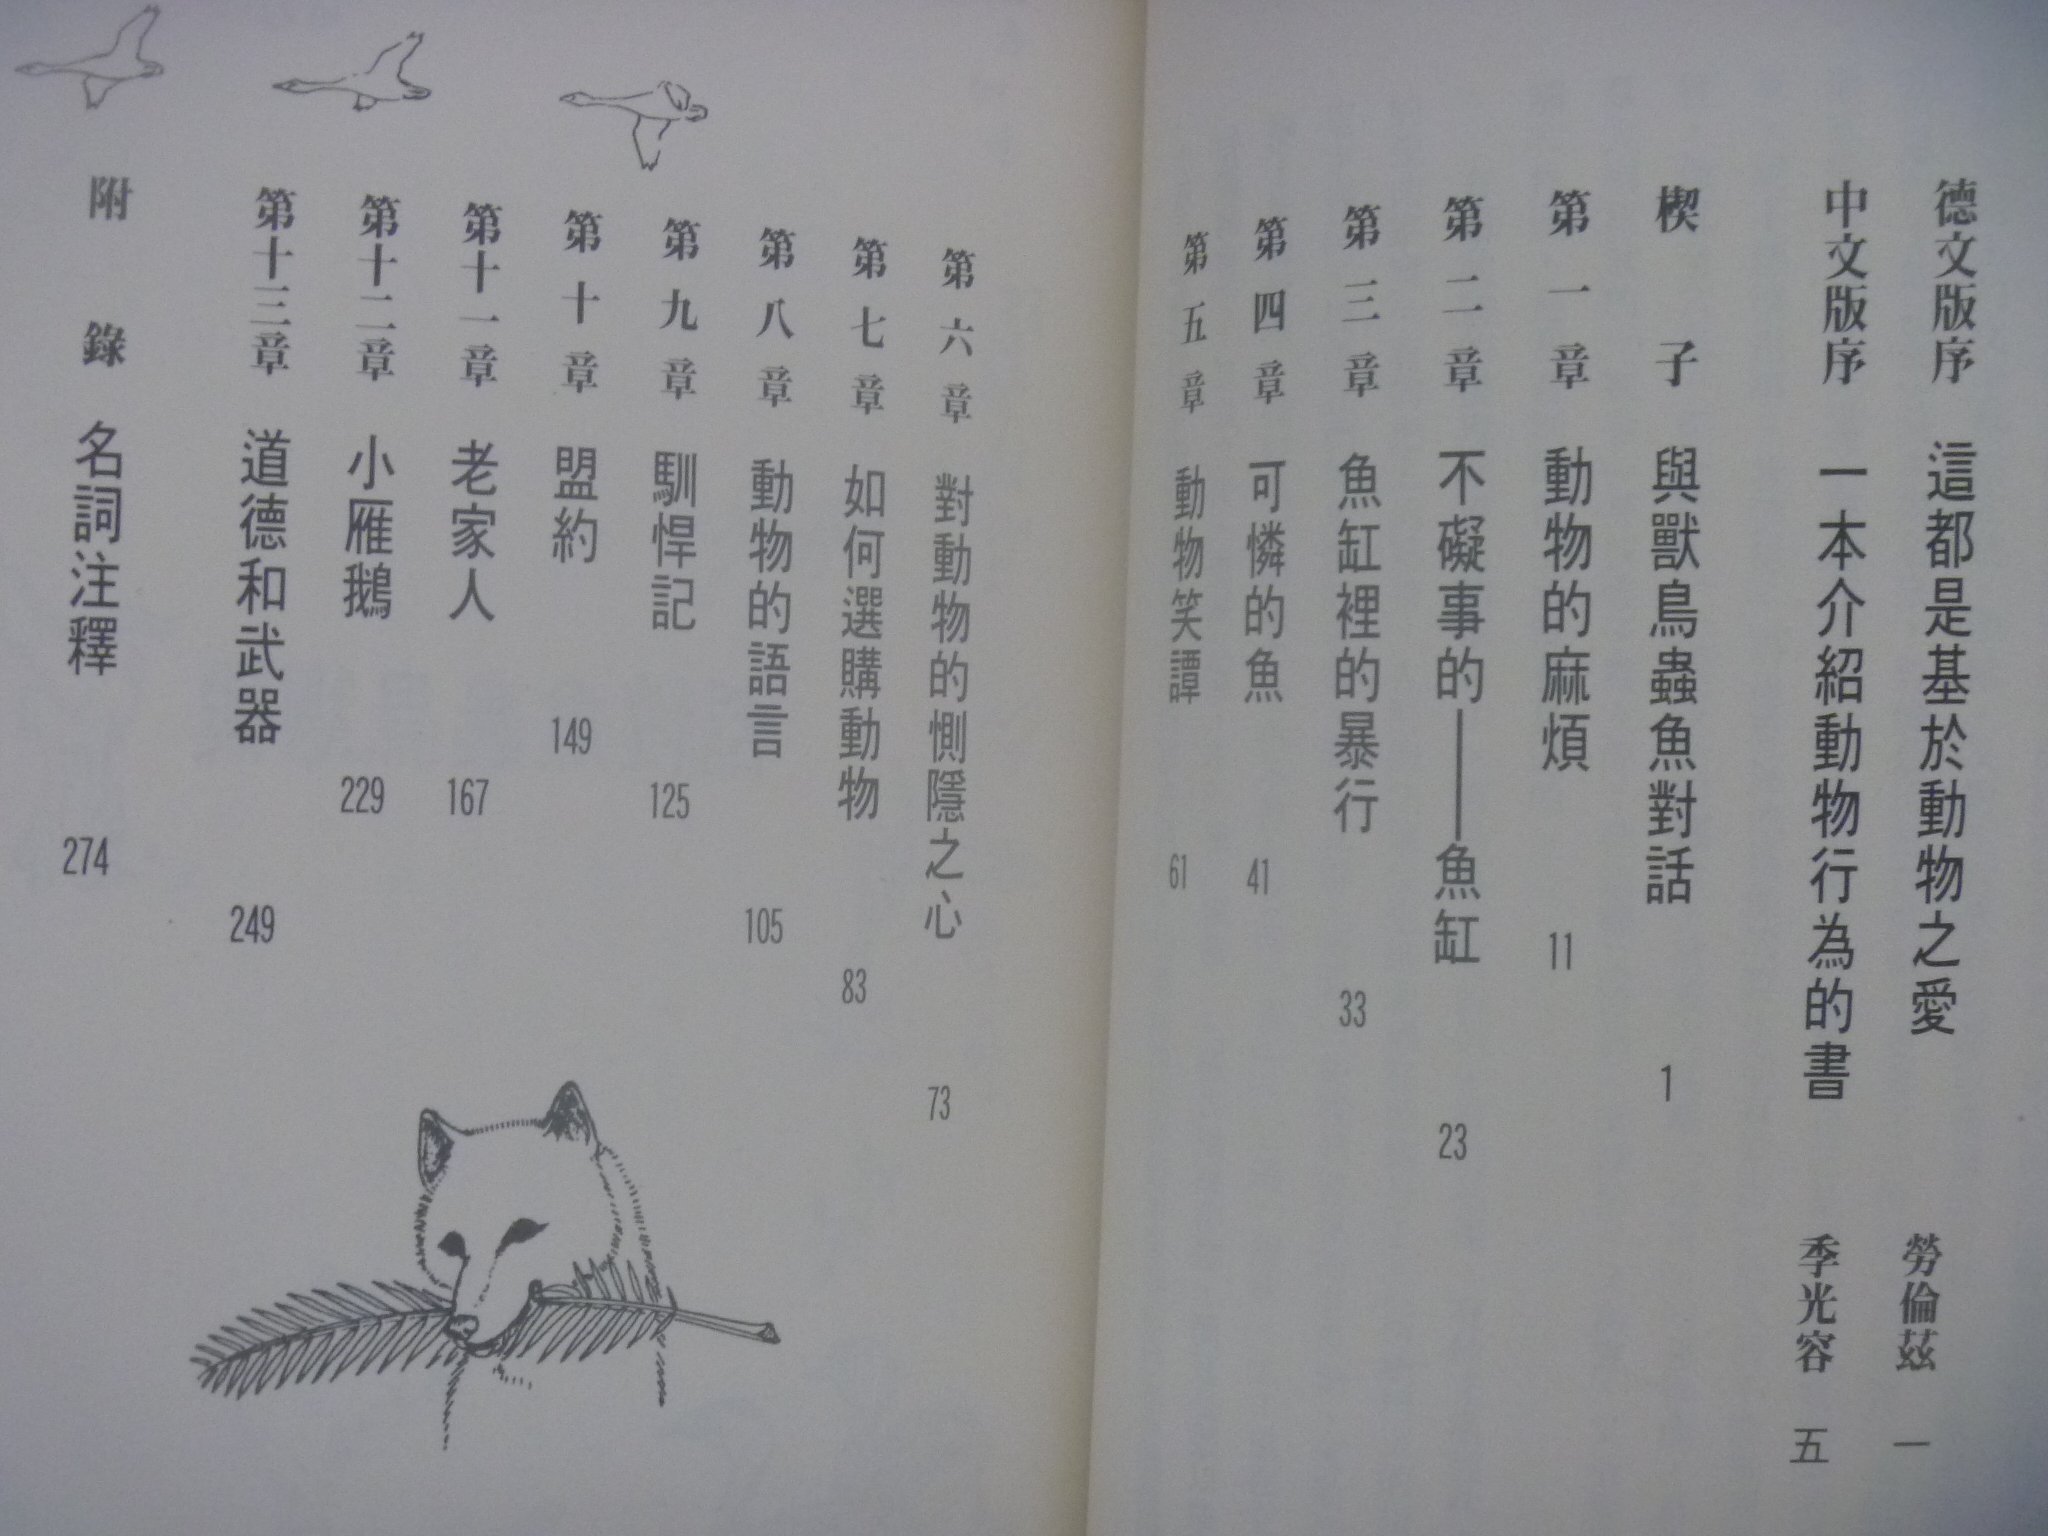 德文版序 這都是基於動物之愛 勞倫茲 一
中文版序 一本介紹動物行為的書 季光容 五
楔子 與獸鳥蟲魚對話 1
第一章 動物的麻煩 11
第二章 不礙事的——魚缸 23
第三章 魚缸裡的暴行 33
第四章 可憐的魚 41
第五章 動物笑譚 61
第六章 對動物的惻隱之心 73
第七章 如何選購動物 83
第八章 動物的語言 105
第九章 馴悍記 125
第十章 盟約 149
第十一章 老家人 167
第十二章 小雁鵝 229
第十三章 道德和武器 249
附錄 名詞注釋 274